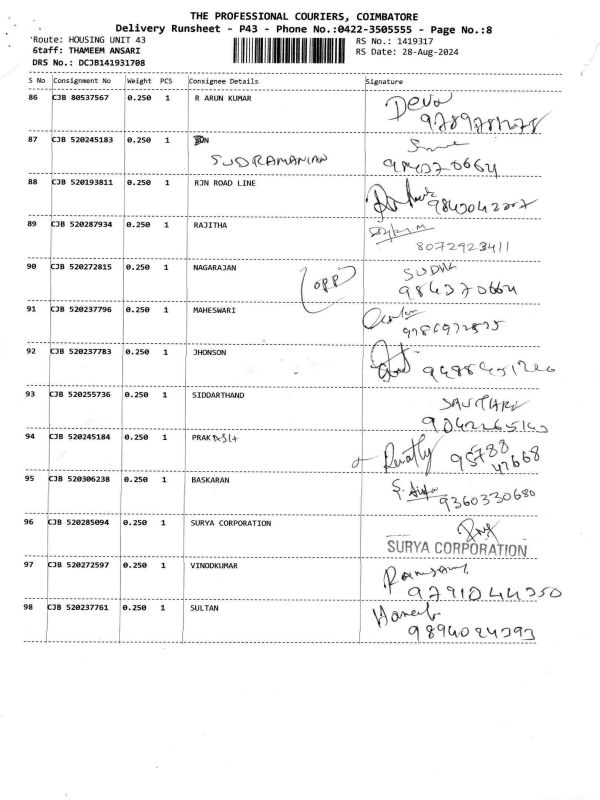 THE PROFESSIONAL COURIERS, COIMBATORE
Delivery Runsheet - P43 - Phone No.:0422-3505555 - Page No.:8
Route: HOUSING UNIT 43 RS No.: 1419317
Staff: THAMEEM ANSARI RS Date: 28-Aug-2024
DRS No.: DCJB141931708
S No Consignment No Weight PCS Consignee Details Signature
86 CJB 80537567 0.250 1 R ARUN KUMAR
87 CJB 520245183 0.250 1
SUDRAMANIAN 984370664
88 CJB 520193811 0.250 1 RJN ROAD LINE
89 CJB 520287934 0.250 1 RAJITHA
8072923411
90 CJB 520272815 0.250 1 NAGARAJAN
(OPP)
91 CJB 520237796 0.250 1 MAHESWARI
92 CJB 520237783 0.250 1 JHONSON
93 CJB 520255736 0.250 1 SIDDARTHAND
94 CJB 520245184 0.250 1 PRAKASH
95788
47668
95 CJB 520306238 0.250 1 BASKARAN
9360330680
96 CJB 520285094 0.250 1 SURYA CORPORATION
SURYA CORPORATION
97 CJB 520272597 0.250 1 VINODKUMAR
9791044350
98 CJB 520237761 0.250 1 SULTAN
9894024393